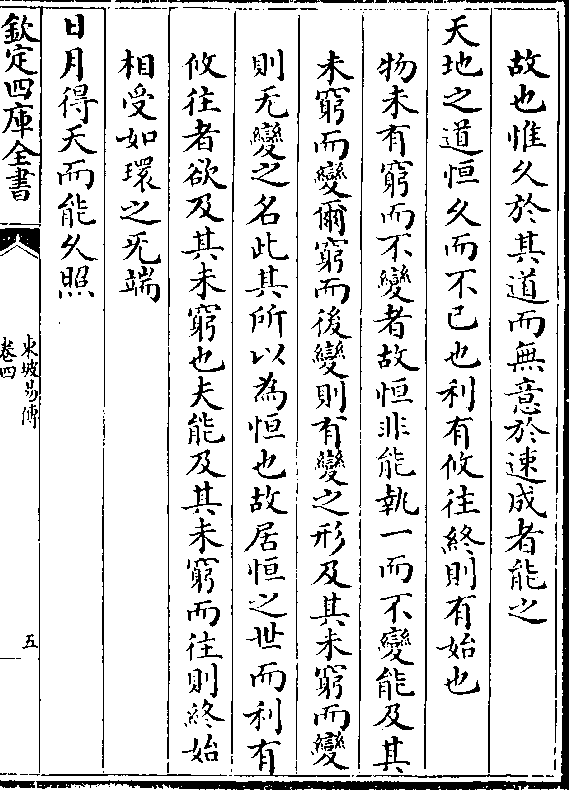 故也惟久於其道而無意於速成者能之
天地之道恒久而不已也利有攸往終則有始也
物未有窮而不變者故恒非能執一而不變能及其
未窮而變爾窮而後變則有變之形及其未窮而變
則无變之名此其所以為恒也故居恒之世而利有
攸往者欲及其未窮也夫能及其未窮而往則終始
相受如環之无端
日月得天而能久照
欽定四庫全書
東坡易傳
卷四
五